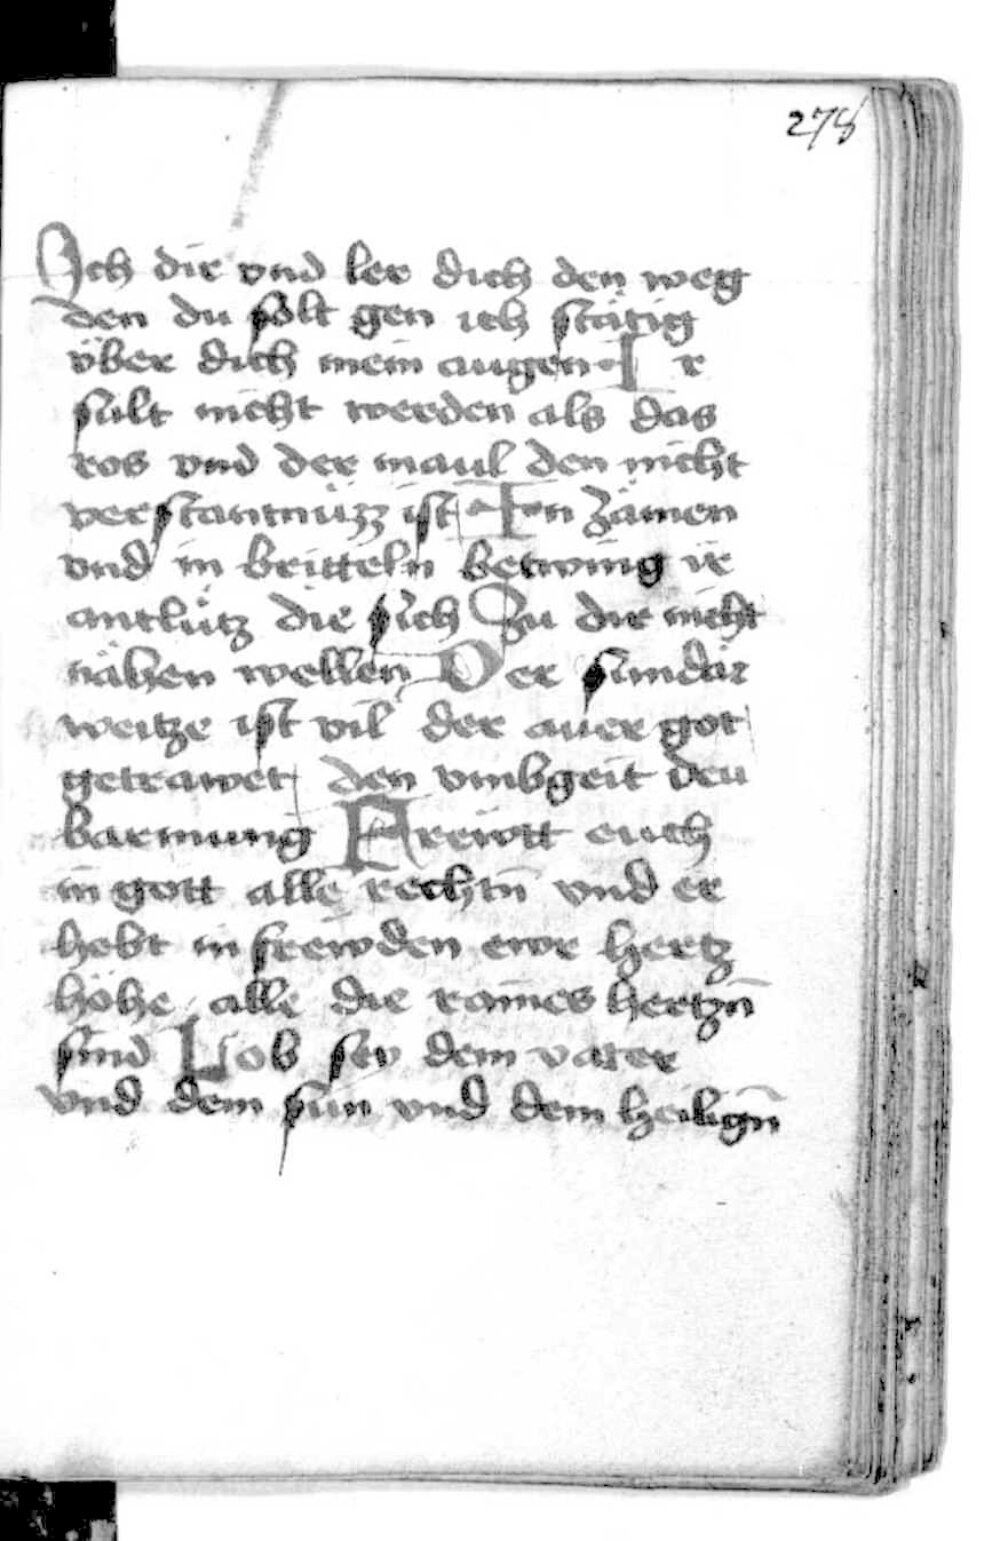 278
Ich dir vnd ler dich den weg
den du solt gen ich stätig
über dich mein augen I r
sült nicht werden als das
ros vnd der maul den nicht
verstantnüzz ist In zämen
vnd in britteln betwing ir
antlütz die sich Zu dir nicht
nähen wellen Der sundär
weitze ist vil der auer got
getrawet den vmbgeit deu
barmung Frewtt euch
in gott alle rechtn̄ vnd er
hebt in frewden ewr hertz
höhe alle die raines hertzn̄
sind Lob sey dem vater
vnd dem sun vnd dem heilign̄